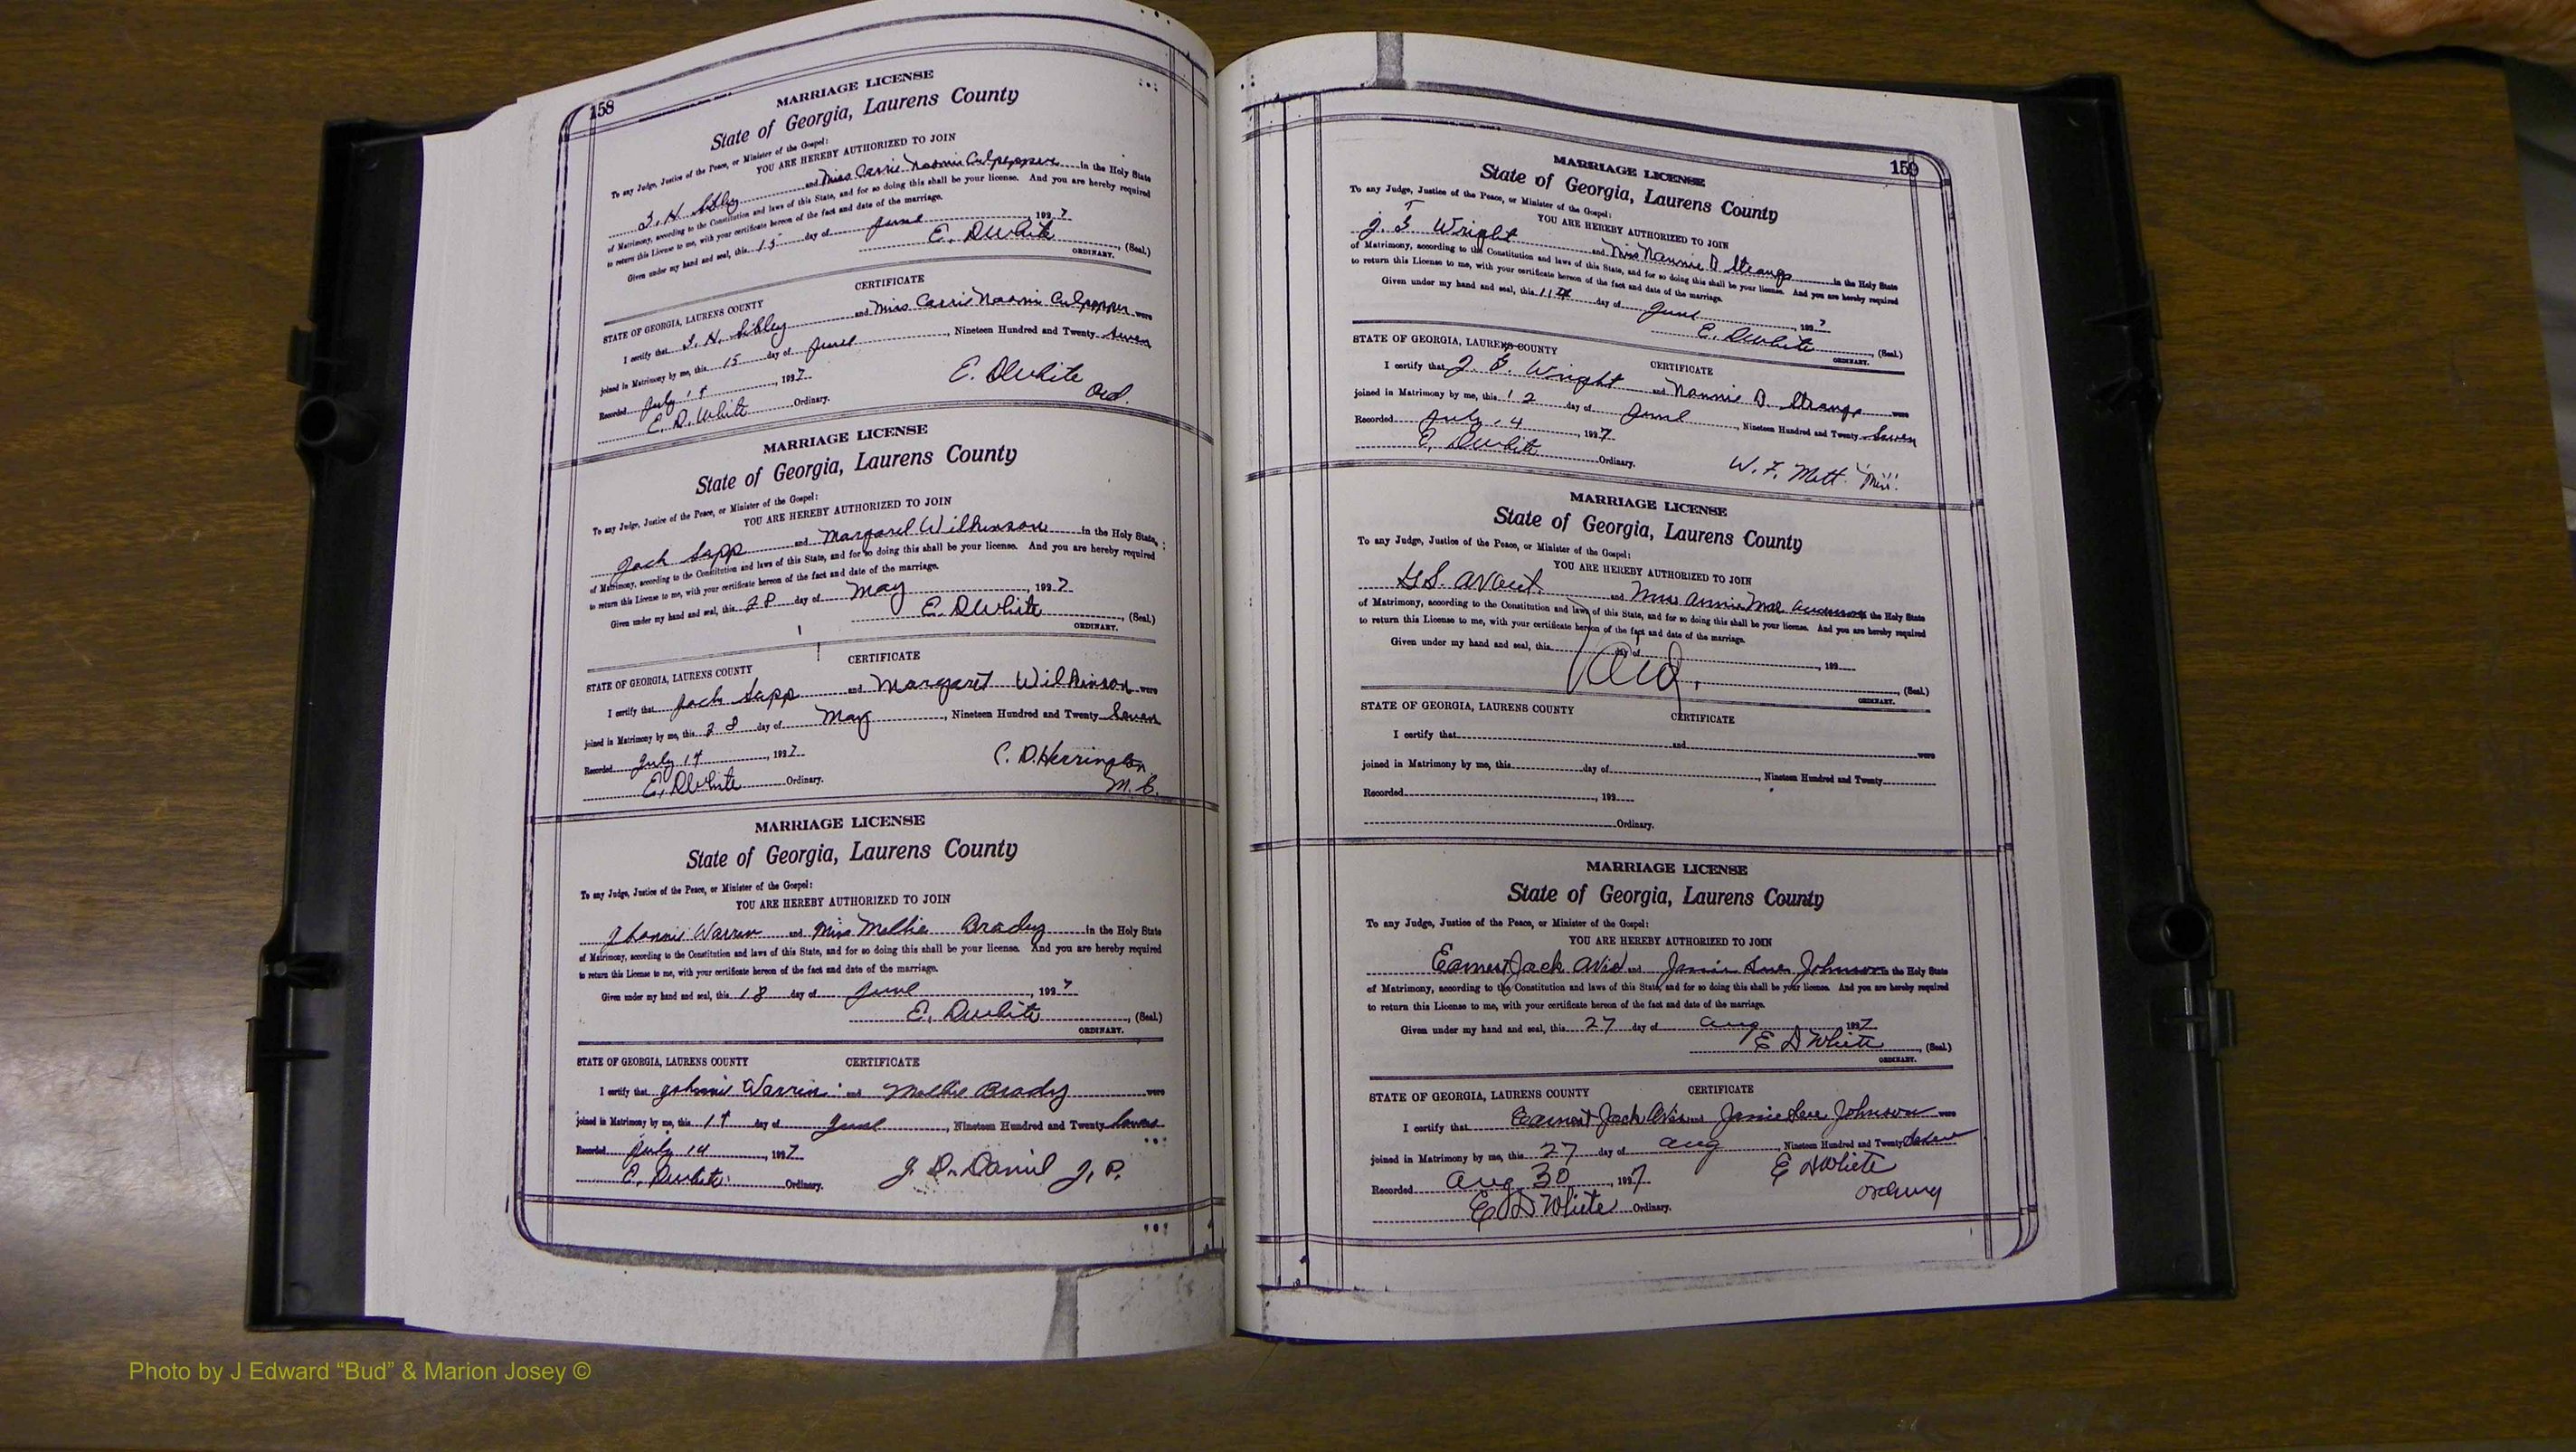 158
MARRIAGE LICENSE
State of Georgia, Laurens County
To any Judge, Justice of the Peace, or Minister of the Gospel:
YOU ARE HEREBY AUTHORIZED TO JOIN
H. Sibley and Miss Carrie Naomi Culpepper in the Holy State
of Matrimony, according to the Constitution and laws of this State, and for so doing this shall be your license. And you are hereby required
to return this License to me, with your certificate hereon of the fact and date of the marriage.
Given under my hand and seal, this 15 day of June, 1927
E. D White, (Seal.)
ORDINARY.
STATE OF GEORGIA, LAURENS COUNTY CERTIFICATE
I certify that H. Sibley and Miss Carrie Naomi Culpepper were
joined in Matrimony by me, this 15 day of June, Nineteen Hundred and Twenty Seven
Recorded July 14, 1927.
E. D. White Ordinary.
E. D White
Ord.
MARRIAGE LICENSE
State of Georgia, Laurens County
To any Judge, Justice of the Peace, or Minister of the Gospel:
YOU ARE HEREBY AUTHORIZED TO JOIN
Jack Sapp and Margaret Wilkinson in the Holy State
of Matrimony, according to the Constitution and laws of this State, and for so doing this shall be your license. And you are hereby required
to return this License to me, with your certificate hereon of the fact and date of the marriage.
Given under my hand and seal, this 28 day of May, 1927
E. D White, (Seal.)
ORDINARY.
STATE OF GEORGIA, LAURENS COUNTY CERTIFICATE
I certify that Jack Sapp and Margaret Wilkinson were
joined in Matrimony by me, this 28 day of May, Nineteen Hundred and Twenty Seven
Recorded July 14, 1927
E. D White Ordinary.
C. D. Herrington
M. G.
MARRIAGE LICENSE
State of Georgia, Laurens County
To any Judge, Justice of the Peace, or Minister of the Gospel:
YOU ARE HEREBY AUTHORIZED TO JOIN
Johnnie Warren and Miss Mellie Brady in the Holy State
of Matrimony, according to the Constitution and laws of this State, and for so doing this shall be your license. And you are hereby required
to return this License to me, with your certificate hereon of the fact and date of the marriage.
Given under my hand and seal, this 18 day of June, 1927
E. D White, (Seal.)
ORDINARY.
STATE OF GEORGIA, LAURENS COUNTY CERTIFICATE
I certify that Johnnie Warren and Mellie Brady were
joined in Matrimony by me, this day of June, Nineteen Hundred and Twenty Seven
Recorded July 14, 1927
E. D White Ordinary.
J. D. Daniel J. P.
159
MARRIAGE LICENSE
State of Georgia, Laurens County
To any Judge, Justice of the Peace, or Minister of the Gospel:
YOU ARE HEREBY AUTHORIZED TO JOIN
J. Wright and Miss Nannie D. Strange in the Holy State
of Matrimony, according to the Constitution and laws of this State, and for so doing this shall be your license. And you are hereby required
to return this License to me, with your certificate hereon of the fact and date of the marriage.
Given under my hand and seal, this 11th day of June, 1927
E. D White, (Seal.)
ORDINARY.
STATE OF GEORGIA, LAURENS COUNTY CERTIFICATE
I certify that J. Wright and Nannie D. Strange were
joined in Matrimony by me, this 12 day of June, Nineteen Hundred and Twenty Seven
Recorded July 14, 1927
E. D White Ordinary.
W. F. Mott "Min".
MARRIAGE LICENSE
State of Georgia, Laurens County
To any Judge, Justice of the Peace, or Minister of the Gospel:
YOU ARE HEREBY AUTHORIZED TO JOIN
Avant and Miss Annie Mae the Holy State
of Matrimony, according to the Constitution and laws of this State, and for so doing this shall be your license. And you are hereby required
to return this License to me, with your certificate hereon of the fact and date of the marriage.
Given under my hand and seal, this day of, 192
(Seal.)
ORDINARY.
STATE OF GEORGIA, LAURENS COUNTY CERTIFICATE
I certify that and were
joined in Matrimony by me, this day of, Nineteen Hundred and Twenty
Recorded, 192
Ordinary.
MARRIAGE LICENSE
State of Georgia, Laurens County
To any Judge, Justice of the Peace, or Minister of the Gospel:
YOU ARE HEREBY AUTHORIZED TO JOIN
Earnest Jack Avis and Janie Johnson in the Holy State
of Matrimony, according to the Constitution and laws of this State, and for so doing this shall be your license. And you are hereby required
to return this License to me, with your certificate hereon of the fact and date of the marriage.
Given under my hand and seal, this 27 day of Aug, 1927
E D White, (Seal.)
ORDINARY.
STATE OF GEORGIA, LAURENS COUNTY CERTIFICATE
I certify that Earnest Jack Avis and Janie Johnson were
joined in Matrimony by me, this 27 day of Aug, Nineteen Hundred and Twenty Seven
Recorded Aug 30, 1927.
E D White Ordinary.
E D White
Ordinary
Photo by J Edward “Bud” & Marion Josey ©